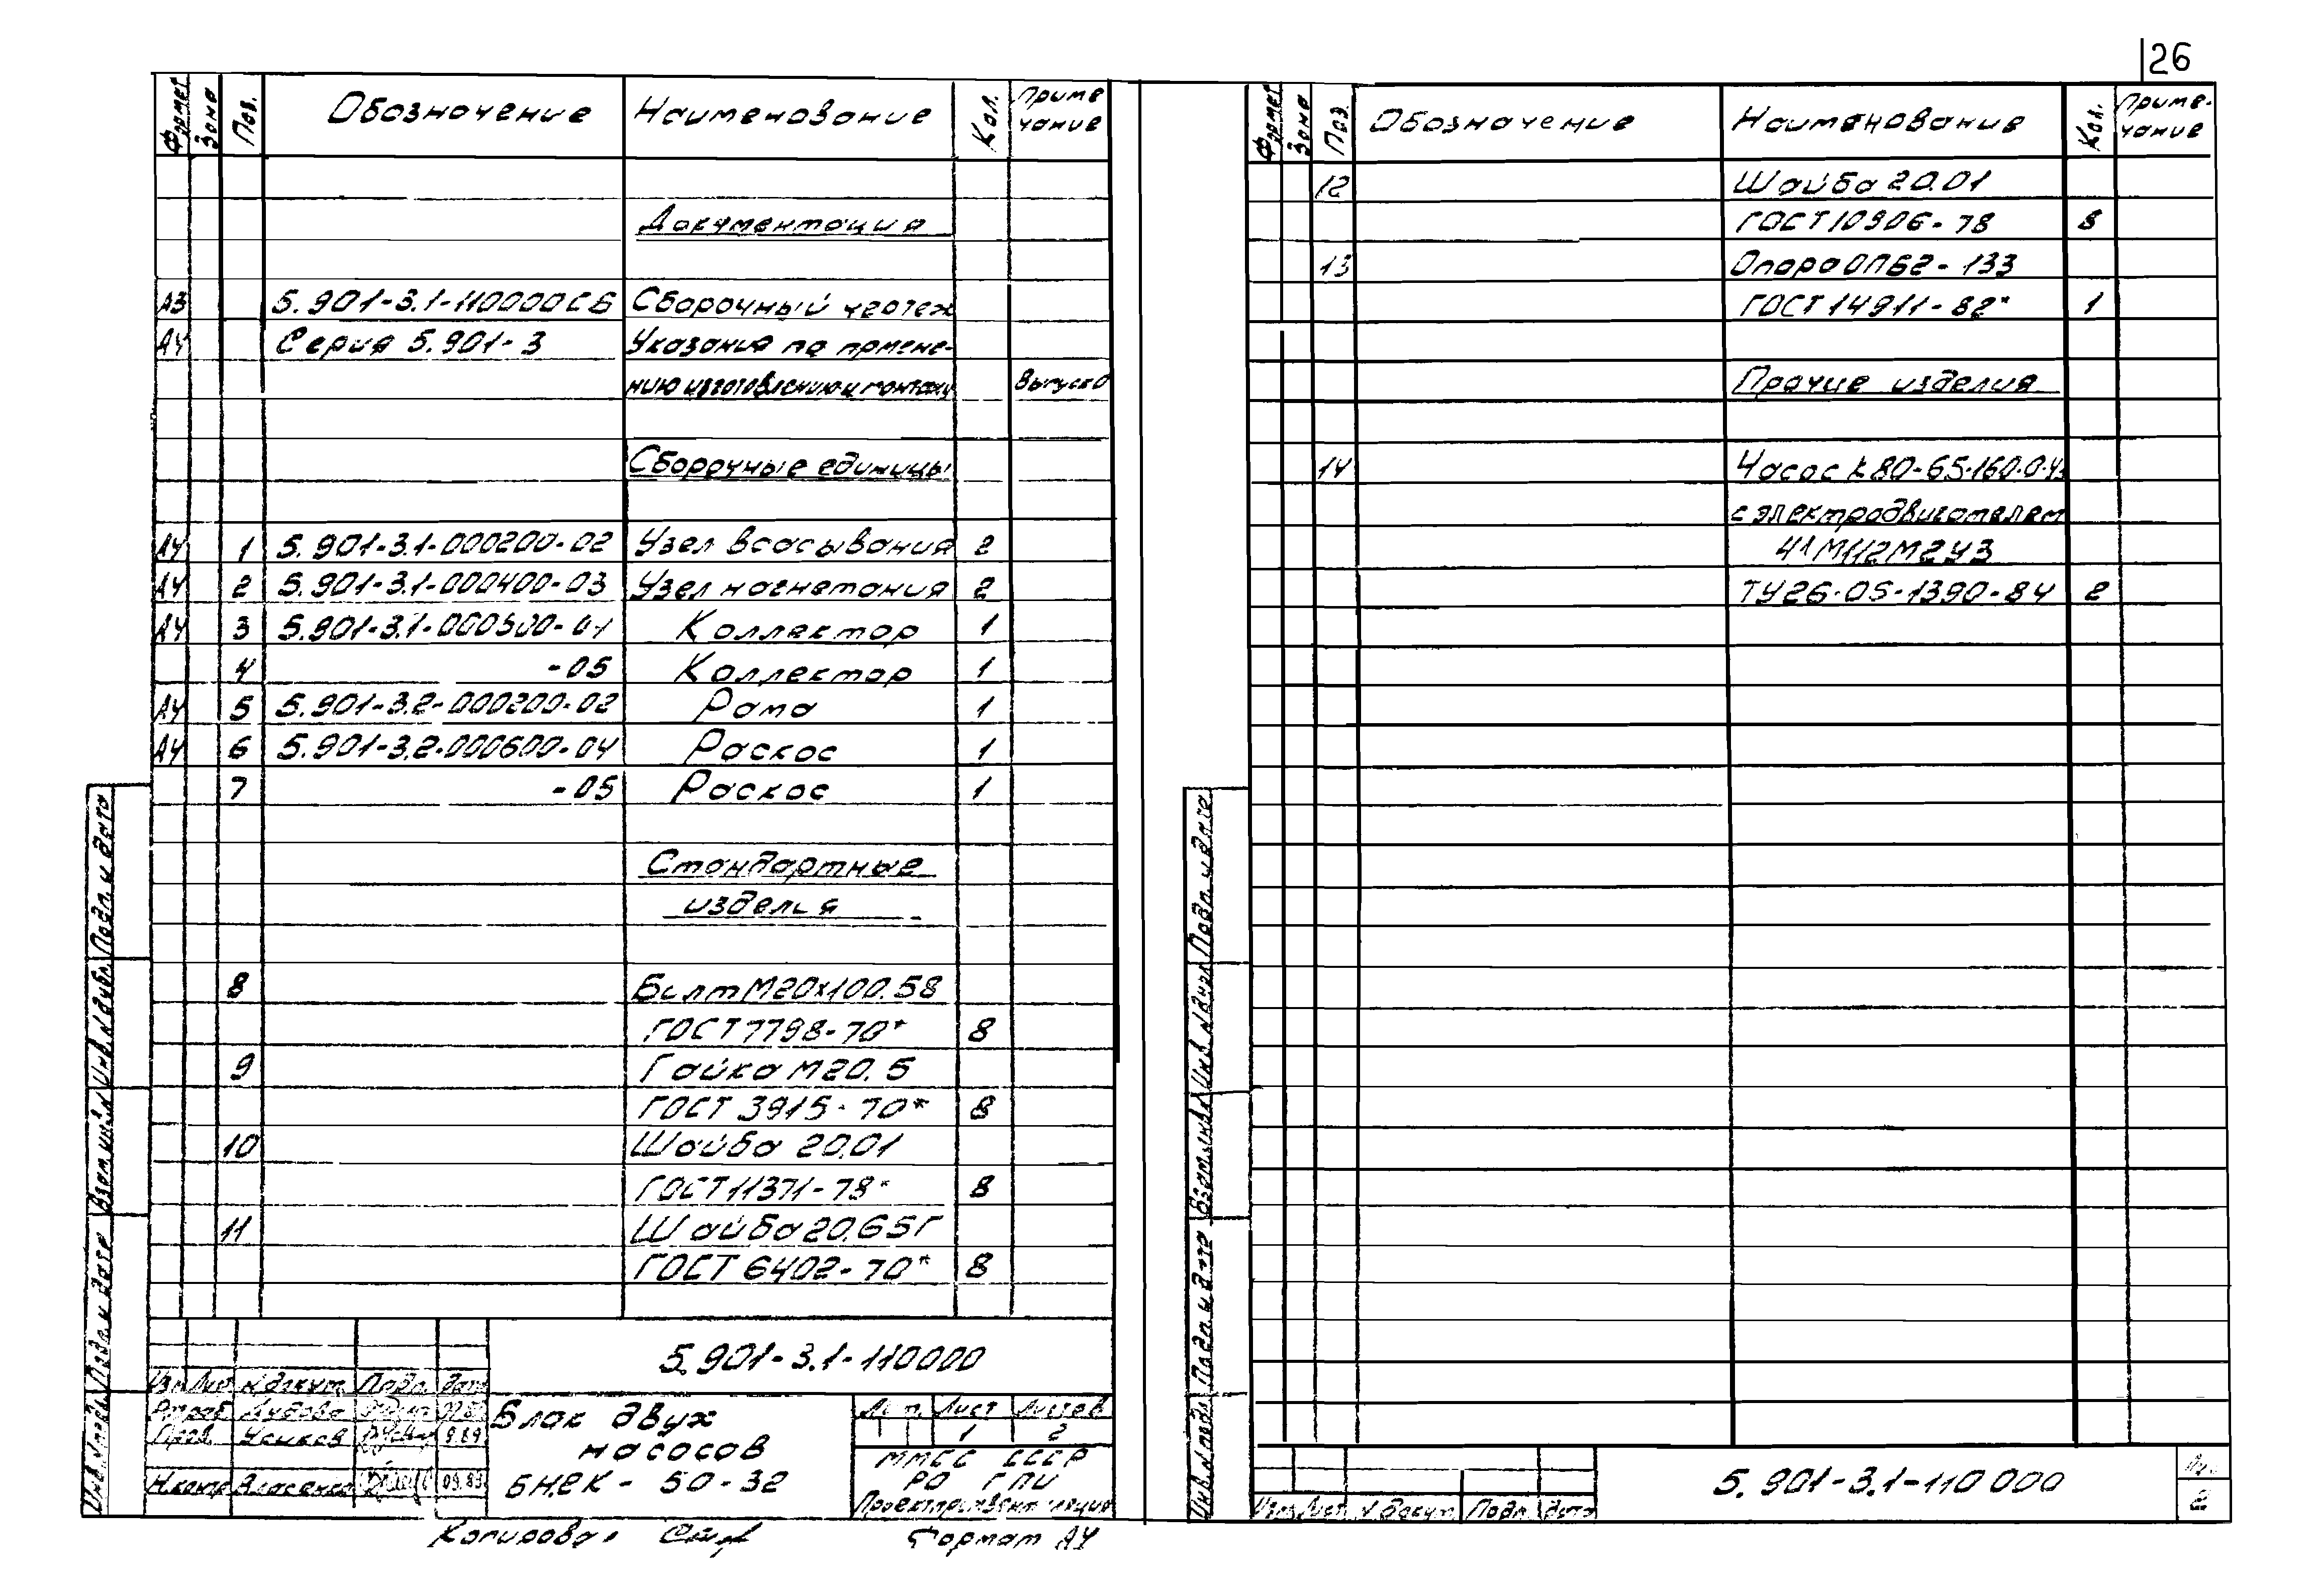 26
Формат Зона Поз. Обозначение Наименование Кол. Приме чание
Документация
А3 5.901-3.1-110000СБ Сборочный чертеж
А4 Серия 5.901-3 Указания по примене-
нию изготовлению и монтажу Выпуск 0
Сборочные единицы
А4 1 5.901-3.1-000200-02 Узел всасывания 2
А4 2 5.901-3.1-000400-03 Узел нагнетания 2
А4 3 5.901-3.1-000500-04 Коллектор 1
4 -05 Коллектор 1
А4 5 5.901-3.2-000200-02 Рама 1
А4 6 5.901-3.2-000600-04 Раскос 1
7 -05 Раскос 1
Стандартные
изделия
8 Болт М20х100.58
ГОСТ 7798-70* 8
9 Гайка М20.5
ГОСТ 3915-70* 8
10 Шайба 20.01
ГОСТ 11371-78* 8
11 Шайба 20.65Г
ГОСТ 6402-70* 8
5.901-3.1-110000
Изм Лист № докум. Подп. Дата
Разраб
Пров. Усиков 9.89
Н.контр Власенко
Блок двух
насосов
БНВК- 50-32
Лит. Лист Листов
1 2
ММСС СССР
РО ГПИ
Проектпромвентиляция
Копировал
Формат А4
Инв. № подл. Подп. и дата Взам. инв. № Инв. № дубл. Подп. и дата
Формат Зона Поз. Обозначение Наименование Кол. Приме- чание
12 Шайба 20.01
ГОСТ 10906-78 8
13 Опора ОПБ2-133
ГОСТ 14911-82* 1
Прочие изделия
14 Насос К80-65-160-0-У3
с электродвигателем
4АМ112М2У3
ТУ26-05-1390-84 2
5.901-3.1-110 000
Изм Лист № докум. Подп. Дата
Лист
2
Инв. № подл. Подп. и дата Взам. инв. № Инв. № дубл. Подп. и дата